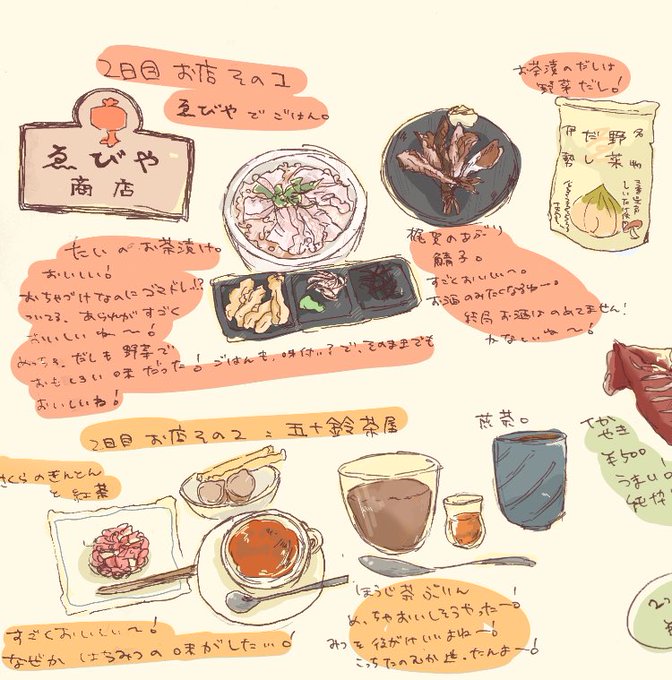 2日目 お店その1
ゑびやでごはん。
ゑびや
商店
お茶漬のだしは
野菜だし!
名物
野菜
だし
伊勢
たいのお茶漬け。
おいしい!
おちゃづけなのにゴマドレ!?
ついてる、あられがすごく
おいしいね〜!
めっちゃ、だしも野菜で
おもしろい味だった! ごはんも、味付いてて、そのままでも
おいしいね!
のあぶり
すごくおいしい〜。
お酒のみたくなるね〜。
結局お酒はのめてません!
かなしいね〜!
2日目 お店その2:五十鈴茶屋
さくらのきんとん
と紅茶
すごくおいしい〜!
なぜかはちみつの味がしたい!
煎茶。
ほうじ茶ぷりん
めっちゃおいしそうやったー!
みつを後がけいいよねー!
こっちたのむか迷ったんよー!
やき
¥500
うまい。